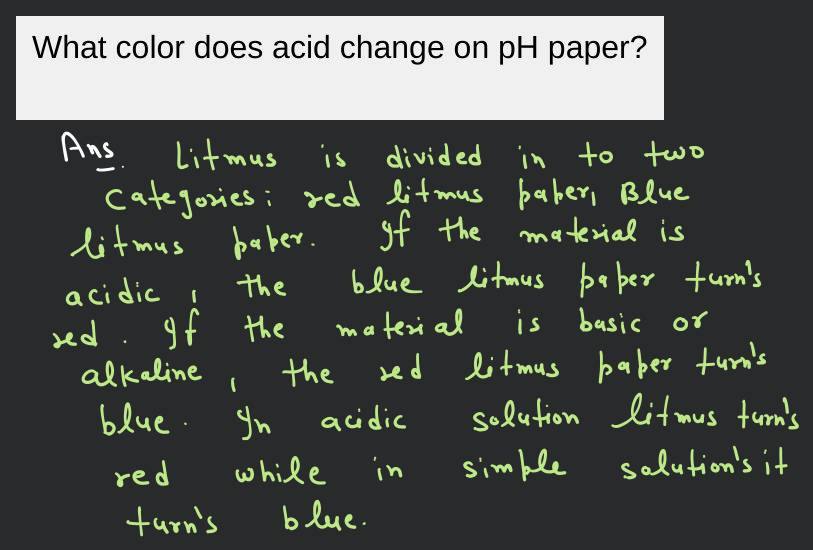 What color does acid change on pH paper?
Ans. Litmus is divided in to two
Categories: red litmus paper, Blue
litmus paper. If the material is
acidic, the blue litmus paper turn's
red. If the material is basic or
alkaline, the red litmus paper turn's
blue. In acidic solution litmus turn's
red while in simple solution's it
turn's blue.